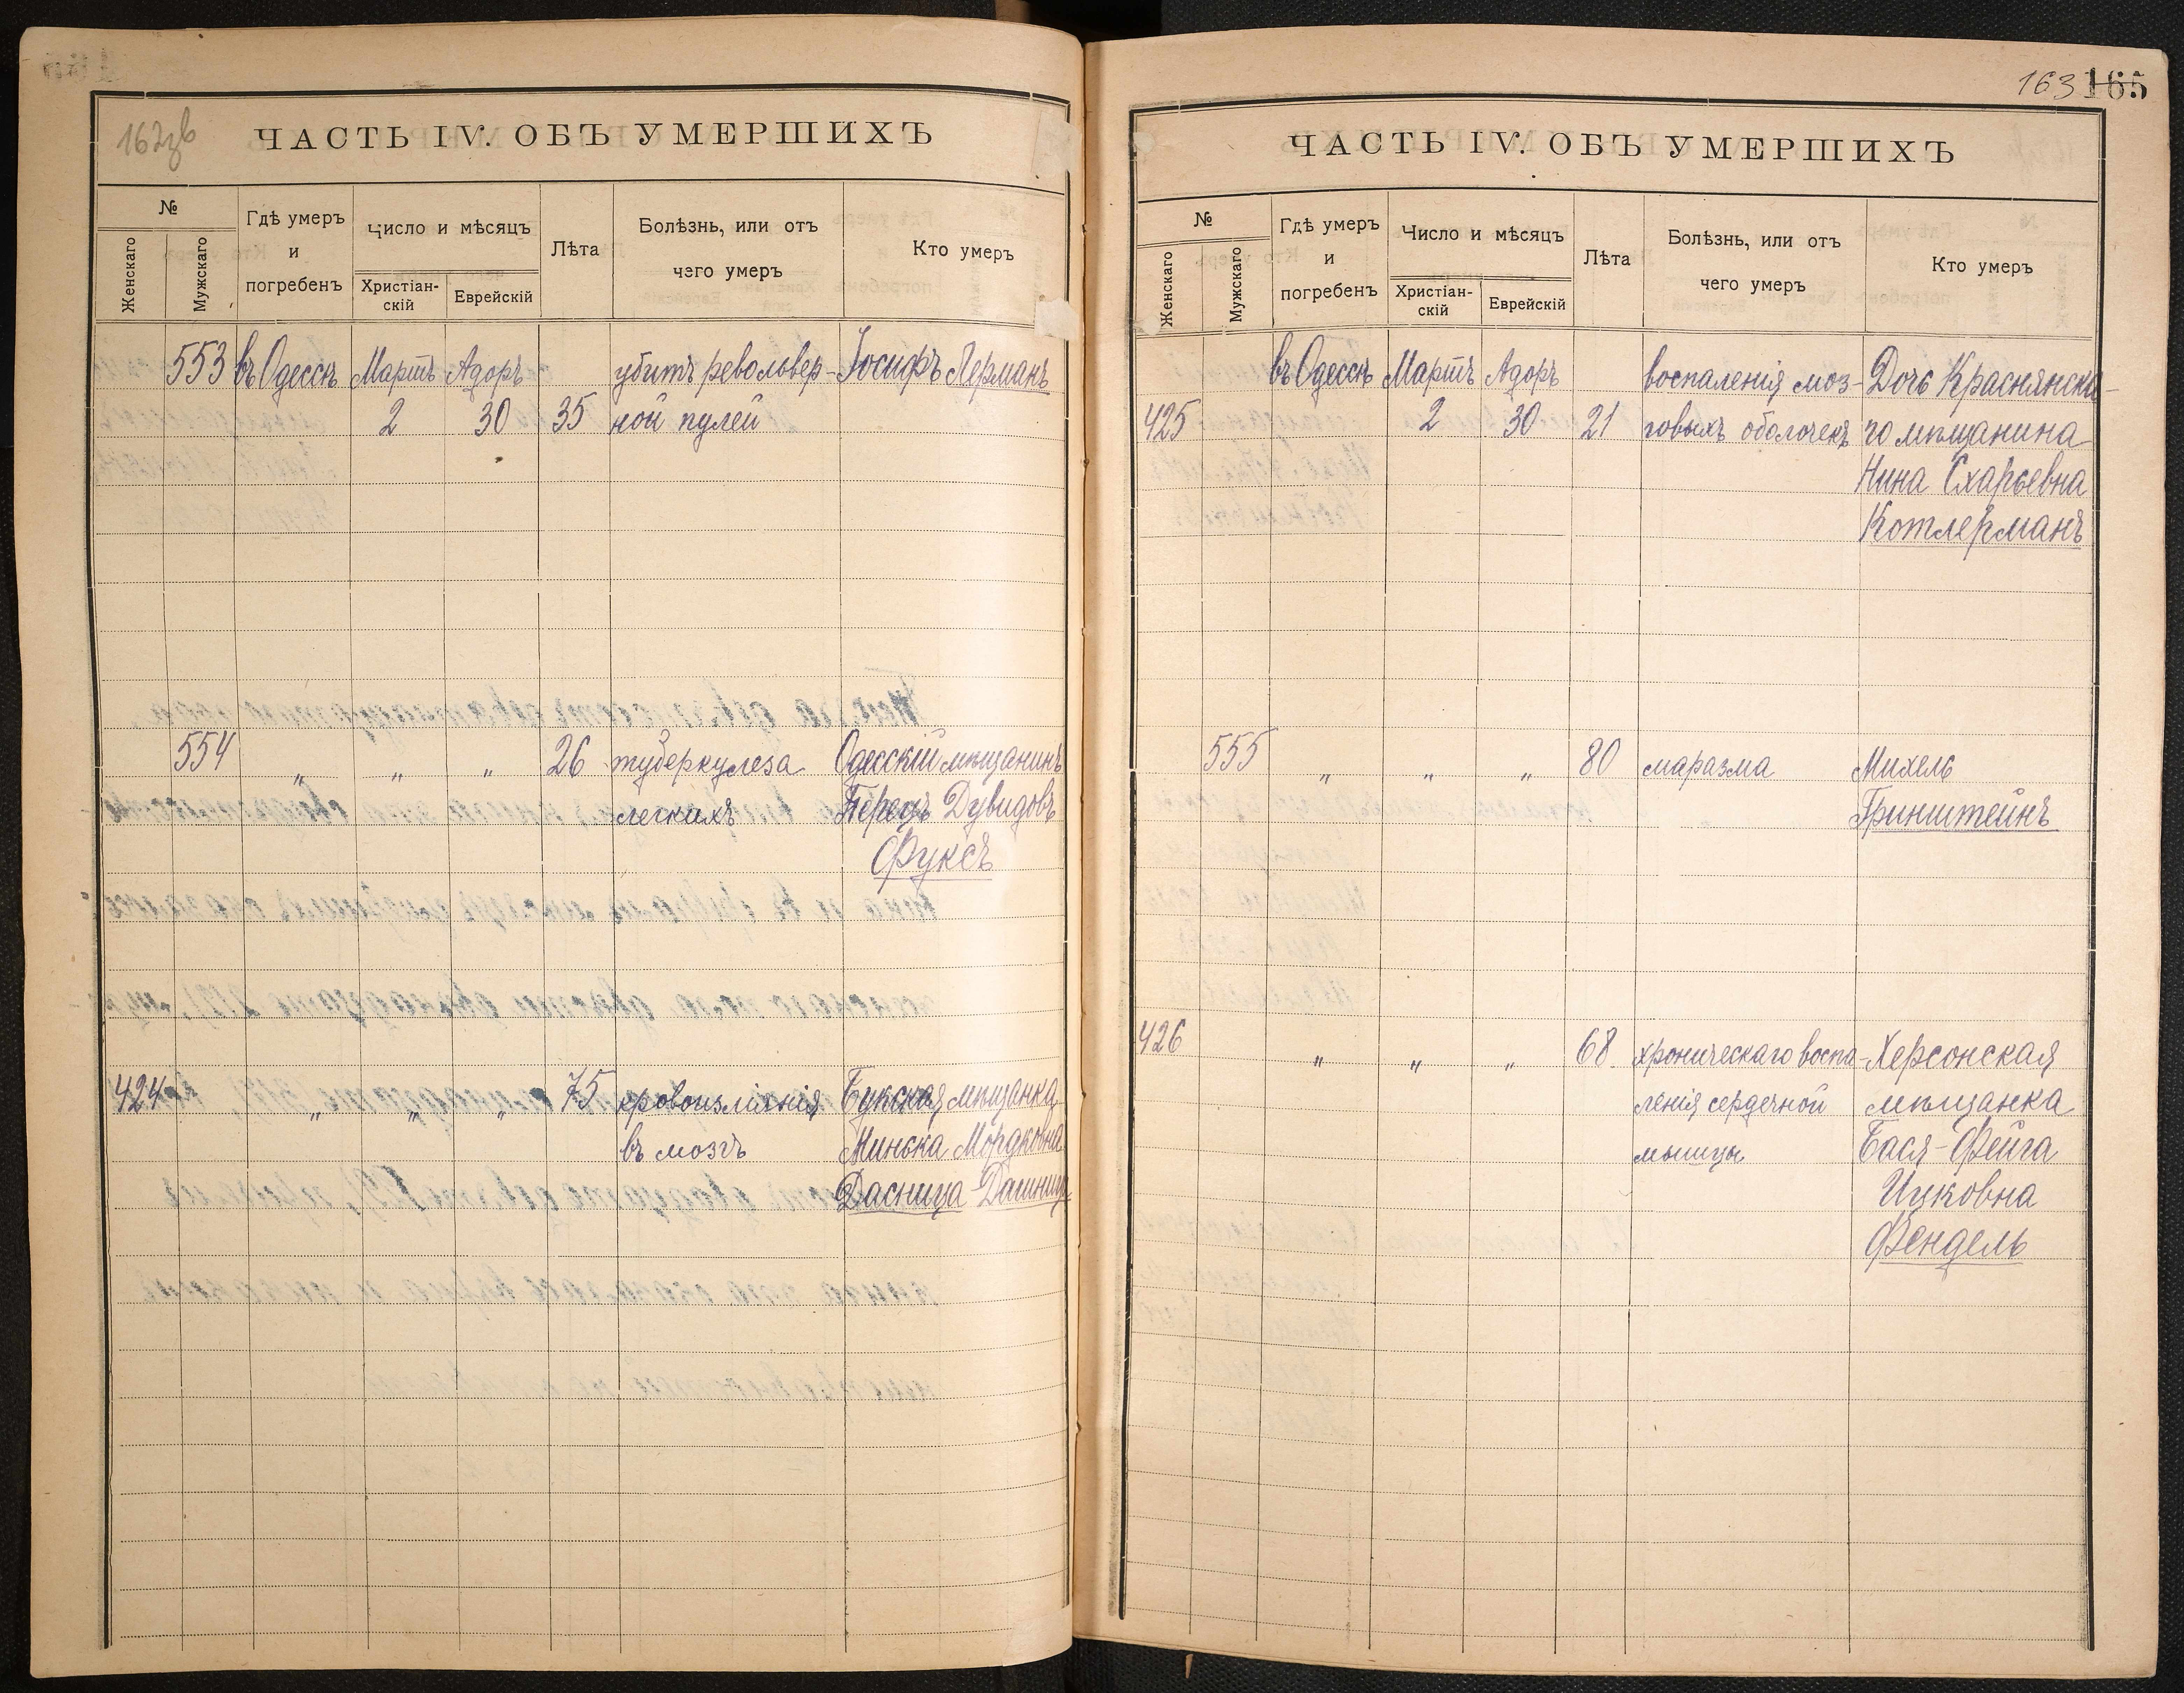 162зв
ЧАСТЬ IV. ОБЪ УМЕРШИХЪ
№
Женскаго
Мужскаго
Гдѣ умеръ
и
погребенъ
Число и мѣсяцъ
Христіан-
скій
Еврейскій
Лѣта
Болѣзнь, или отъ
чего умеръ
Кто умеръ
553 въ Одессѣ Мартъ Адоръ убитъ револьвер- Іосифъ Лерманъ
2 30 35 ной пулей
554 " " " 26 туберкулеза Одесскій мѣщанинъ
легкихъ Перецъ Дувидовъ
Фуксъ
424 " " " 75 кровоизліянія Букская мѣщанка
въ мозгъ Минска Мордковна
Дасница-Дашница
163 165
ЧАСТЬ IV. ОБЪ УМЕРШИХЪ
№
Женскаго
Мужскаго
Гдѣ умеръ
и
погребенъ
Число и мѣсяцъ
Христіан-
скій
Еврейскій
Лѣта
Болѣзнь, или отъ
чего умеръ
Кто умеръ
въ Одессѣ Мартъ Адоръ воспаленія моз- Дочь Краснянска-
425 2 30 21 говыхъ оболочекъ го мѣщанина
Нина Схарьевна
Котлерманъ
555 " " " 80 маразма Михель
Гринштейнъ
426 " " " 68. хроническаго воспа- Херсонская
ленія сердечной мѣщанка
мышцы Бася-Фейга
Ицковна
Фендель